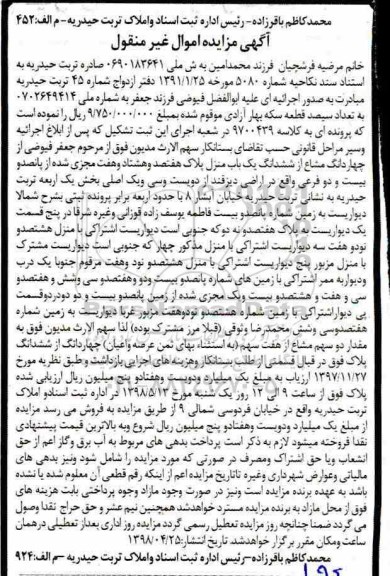 محمدکاظم باقرزاده- رئیس اداره ثبت اسناد واملاک تربت حیدریه- م الف:۴۵۲
آگهی مزایده اموال غیر منقول
خانم مرضیه فرشچیان فرزند محمدامین به ش ملی ۰۶۹۰۱۸۳۶۴۱ صادره تربت حیدریه به
استناد سند نکاحیه شماره ۵۰۸۰ مورخه ۱۳۹۱/۱/۲۵ دفتر ازدواج شماره ۴۵ تربت حیدریه
مبادرت به صدور اجرائیه ای علیه ابوالفضل فیوضی فرزند جعفر به شماره ملی ۰۷۰۲۶۴۹۴۱۴
به تعداد سیصد قطعه سکه بهار آزادی مقوم شده بمبلغ ۹/۷۵۰/۰۰۰/۰۰۰ ریال را نموده است
که پرونده ای به کلاسه ۹۷۰۰۴۳۹ در شعبه اجرای این ثبت تشکیل که پس از ابلاغ اجرائیه
وسیر مراحل قانونی حسب تقاضای بستانکار سهم الارث مدیون فوق از مرحوم جعفر فیوضی از
چهاردانگ مشاع از ششدانگ یک باب منزل پلاک هفتصد وهشتاد وهفت مجزی شده از پانصدو
بیست و دو فرعی واقع در اراضی دیزقند از دویست وسی ویک اصلی بخش یک اربعه تربت
حیدریه به نشانی تربت حیدریه خیابان آبشار ۸ با حدود اربعه برابر پرونده ثبتی بشرح شمالا
دیواریست به زمین شماره پانصدو بیست فاطمه یوسف زاده قوژانی وغیره شرقا در پنج قسمت
یک دیواریست به پلاک هفتصدو نه دوکه جنوبی است دیواریست اشتراکی با منزل هشتصدو
نودو هفت سه دیواریست اشتراکی با منزل مذکور چهار که جنوبی است دیواریست مشترک
با منزل مزبور پنج دیواریست اشتراکی با منزل هشتصدو نود وهفت مرقوم جنوبا یک درب
ودیواربه ممر اشتراکی با زمین های شماره پانصدو بیست ودو وهفتصدو سی وشش و هفتصدو
سی و هفت و هشتصدو بیست ویک مجزی شده از زمین پانصدو بیست و دو دودردوقسمت
پی دیواراشتراکی با زمین شماره هشتصدو نودوهفت مزبور غربا دیواریست به زمین شماره
هفتصدوسی وشش محمدرضا وثوقی (قبلا مرز مشترک بوده) لذا سهم الارث مدیون فوق به
مقدار دو سهم مشاع از هفت سهم (به استثناء بهای ثمن عرصه واعیان) چهاردانگ از ششدانگ
پلاک فوق در قبال قسمتی از طلب بستانکار وهزینه های اجرایی بازداشت و طبق نظریه مورخ
۱۳۹۷/۱۱/۲۷ ارزیاب به مبلغ یک میلیارد ودویست وهفتادو پنج میلیون ریال ارزیابی شده
پلاک فوق از ساعت ۹ الی ۱۲ روز یک شنبه مورخ ۱۳۹۸/۵/۱۳ در اداره ثبت اسنادو املاک
تربت حیدریه واقع در خیابان فردوسی شمالی ۹ از طریق مزایده به فروش می رسد مزایده
از مبلغ یک میلیارد ودویست وهفتادو پنج میلیون ریال شروع وبه بالاترین قیمت پیشنهادی
نقدا فروخته میشود لازم به ذکر است پرداخت بدهی های مربوط به آب برق وگاز اعم از حق
انشعاب ویا حق اشتراک ومصرف در صورتی که مورد مزایده را شامل شود ونیز بدهی های
مالیاتی وعوارض شهرداری وغیره تاتاریخ مزایده اعم از اینکه رقم قطعی آن معلوم شده یا نشده
باشد به عهده برنده مزایده است ونیز در صورت وجود مازاد وجوه پرداختی بابت هزینه های
فوق از محل مازاد به برنده مزایده مسترد خواهدشد همچنین نیم عشر و حق حراج نقدا وصول
می گردد ضمنا چنانچه روز مزایده تعطیل رسمی گردد مزایده روز اداری بعداز تعطیلی در همان
ساعت ومکان مقرر برگزار خواهدشد. تاریخ انتشار:۱۳۹۸/۰۴/۲۵
محمدکاظم باقرزاده-رئیس اداره ثبت اسناد واملاک تربت حیدریه-م الف:۹۲۴